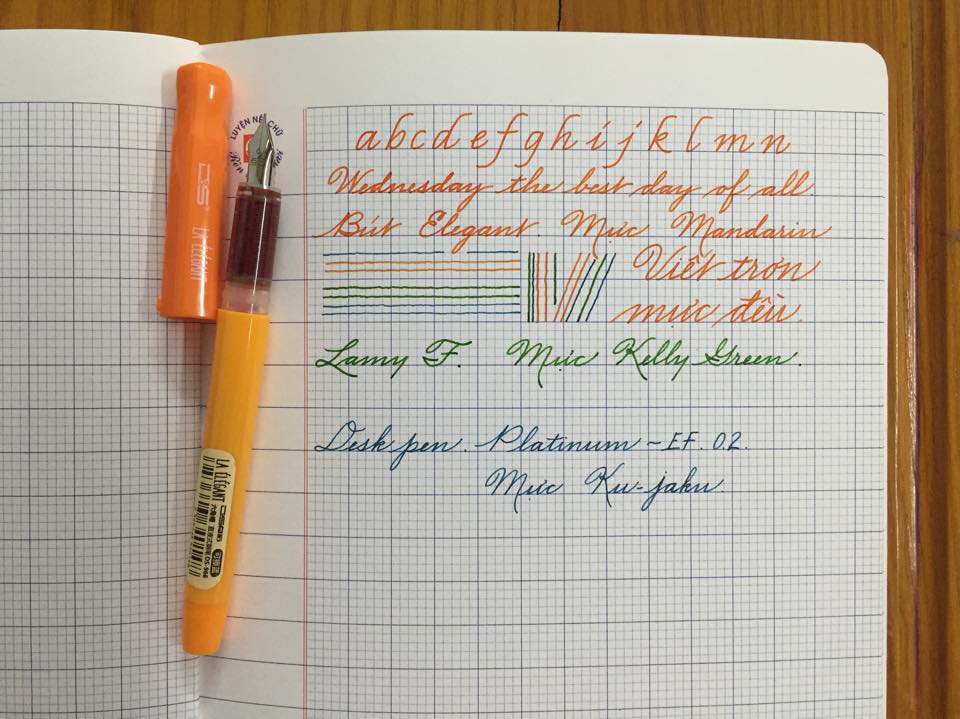 a b c d e f g h i j k l m n
Wednesday the best day of all.
Bút Elegant Mực Mandarin
Viết trơn
mực đều.
Lamy F. Mực Kelly Green.
Desk pen. Platinum - EF. 0.2.
Mực Ku-jaku.
LUYỆN NÉT CHỮ
DS
LA ÉLÉGANT
LA ÉLÉGANT
DS-966